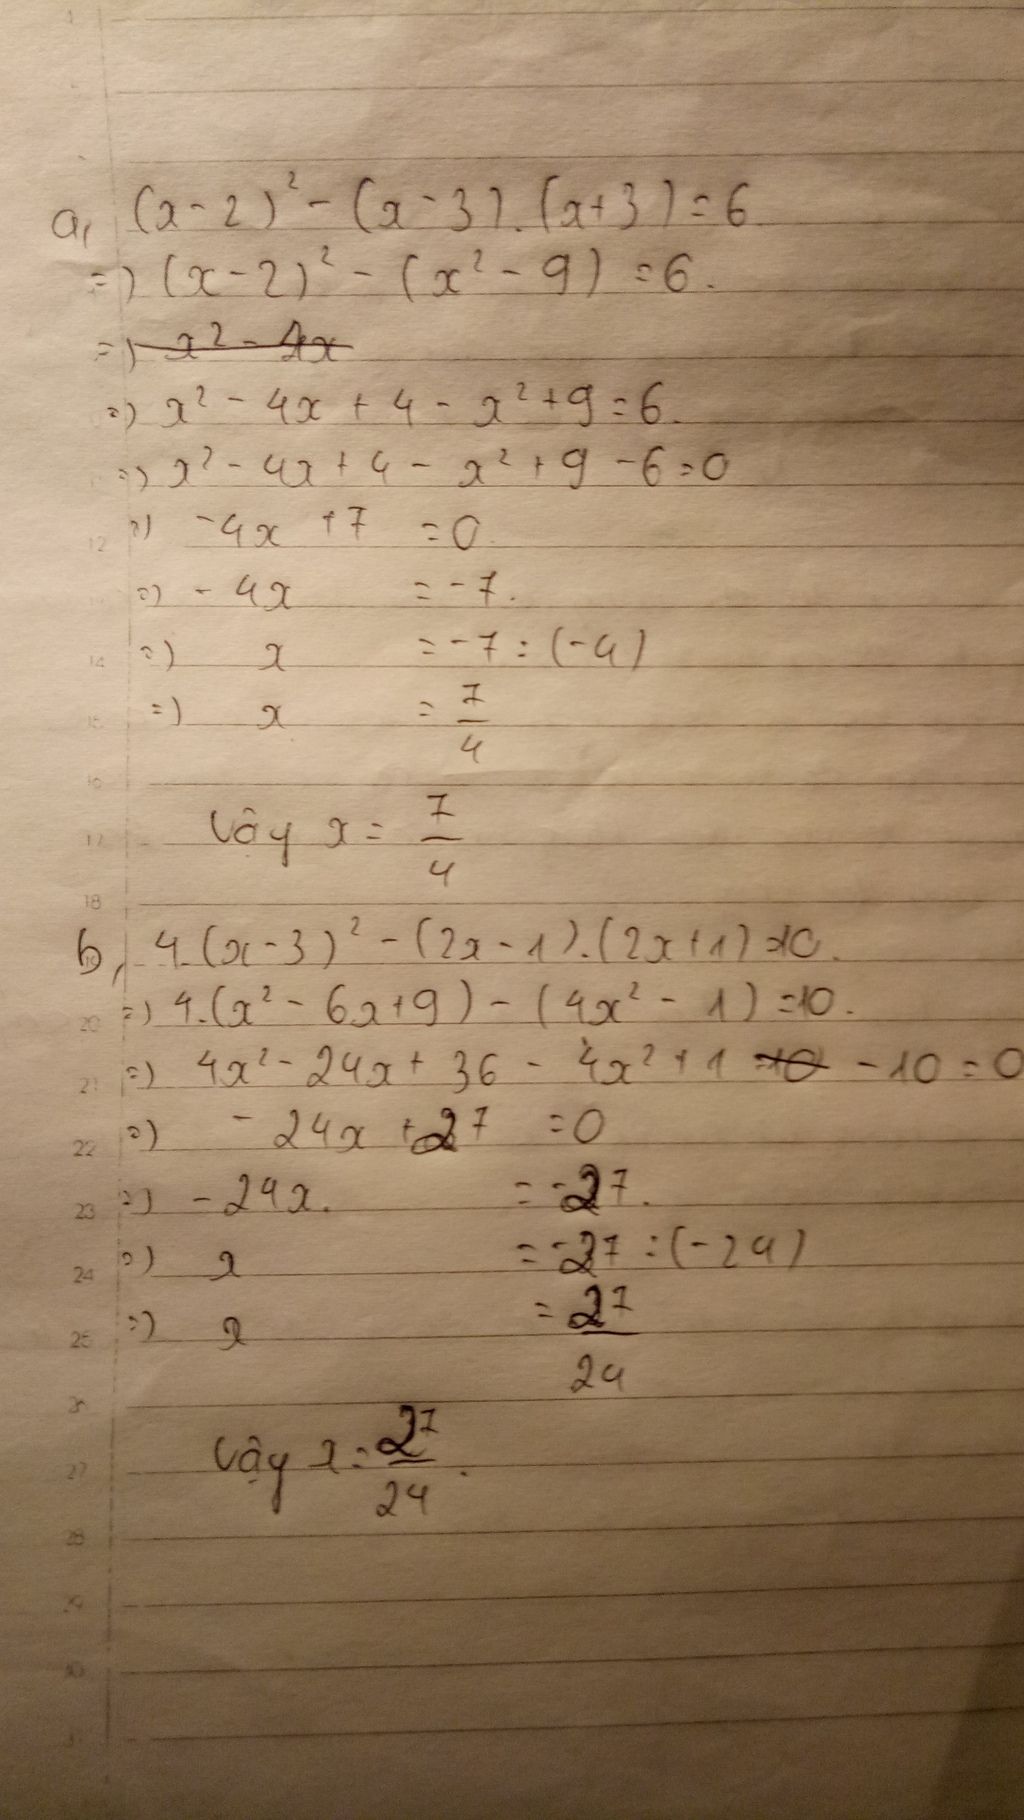 a, (x-2)² - (x-3).(x+3) = 6
=) (x-2)² - (x² - 9) = 6.
=) x² - 4x
=) x² - 4x + 4 - x² + 9 = 6.
=) x² - 4x + 4 - x² + 9 - 6 = 0
=) -4x + 7 = 0.
=) - 4x = -7.
=) x = -7 : (-4)
=) x = 7/4
Vậy x = 7/4
b, 4.(x-3)² - (2x-1).(2x+1) = 10.
=) 4.(x² - 6x+9) - (4x² - 1) = 10.
=) 4x² - 24x + 36 - 4x² + 1 =10 - 10 = 0
=) - 24x + 27 = 0
=) - 24x. = -27.
=) x = -27 : (-24)
=) x = 27/24
Vậy x = 27/24.